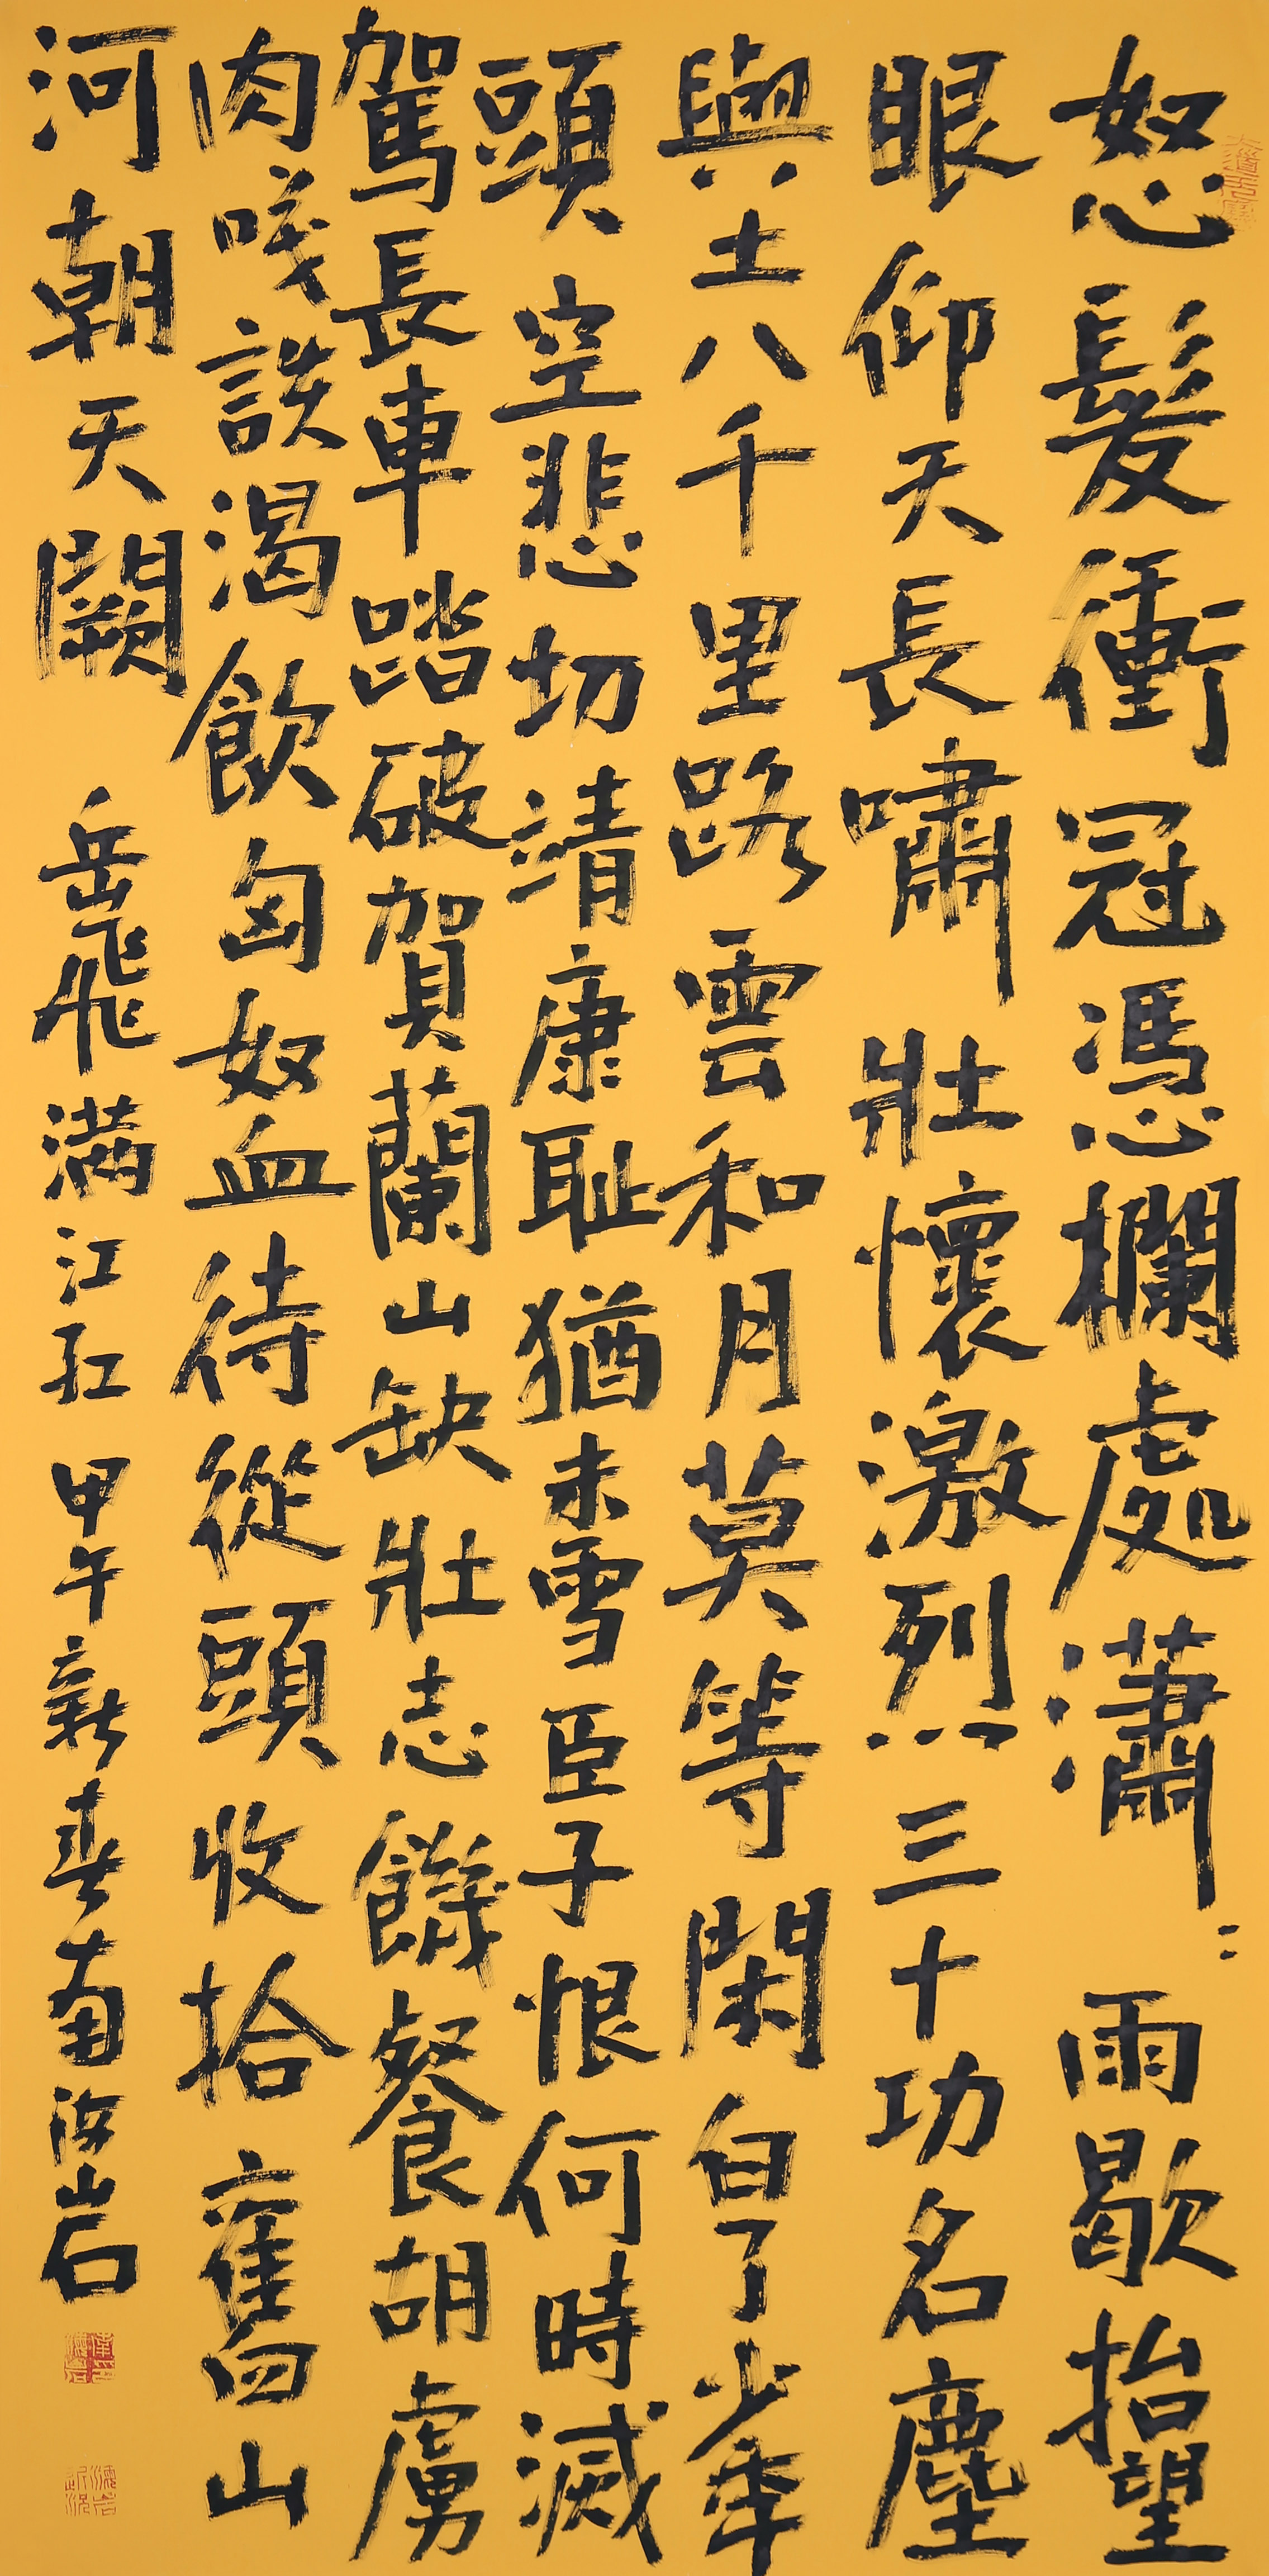 怒髮衝冠憑欄處瀟〻雨歇抬望
眼仰天長嘯壯懷激烈三十功名塵
與土八千里路雲和月莫等閑白了少年
頭空悲切靖康耻猶未雪臣子恨何時滅
駕長車踏破賀蘭山缺壯志饑餐胡虜
肉咲談渴飲匈奴血待從頭收拾舊山
河朝天闕 岳飛滿江紅 甲午新春南海岩